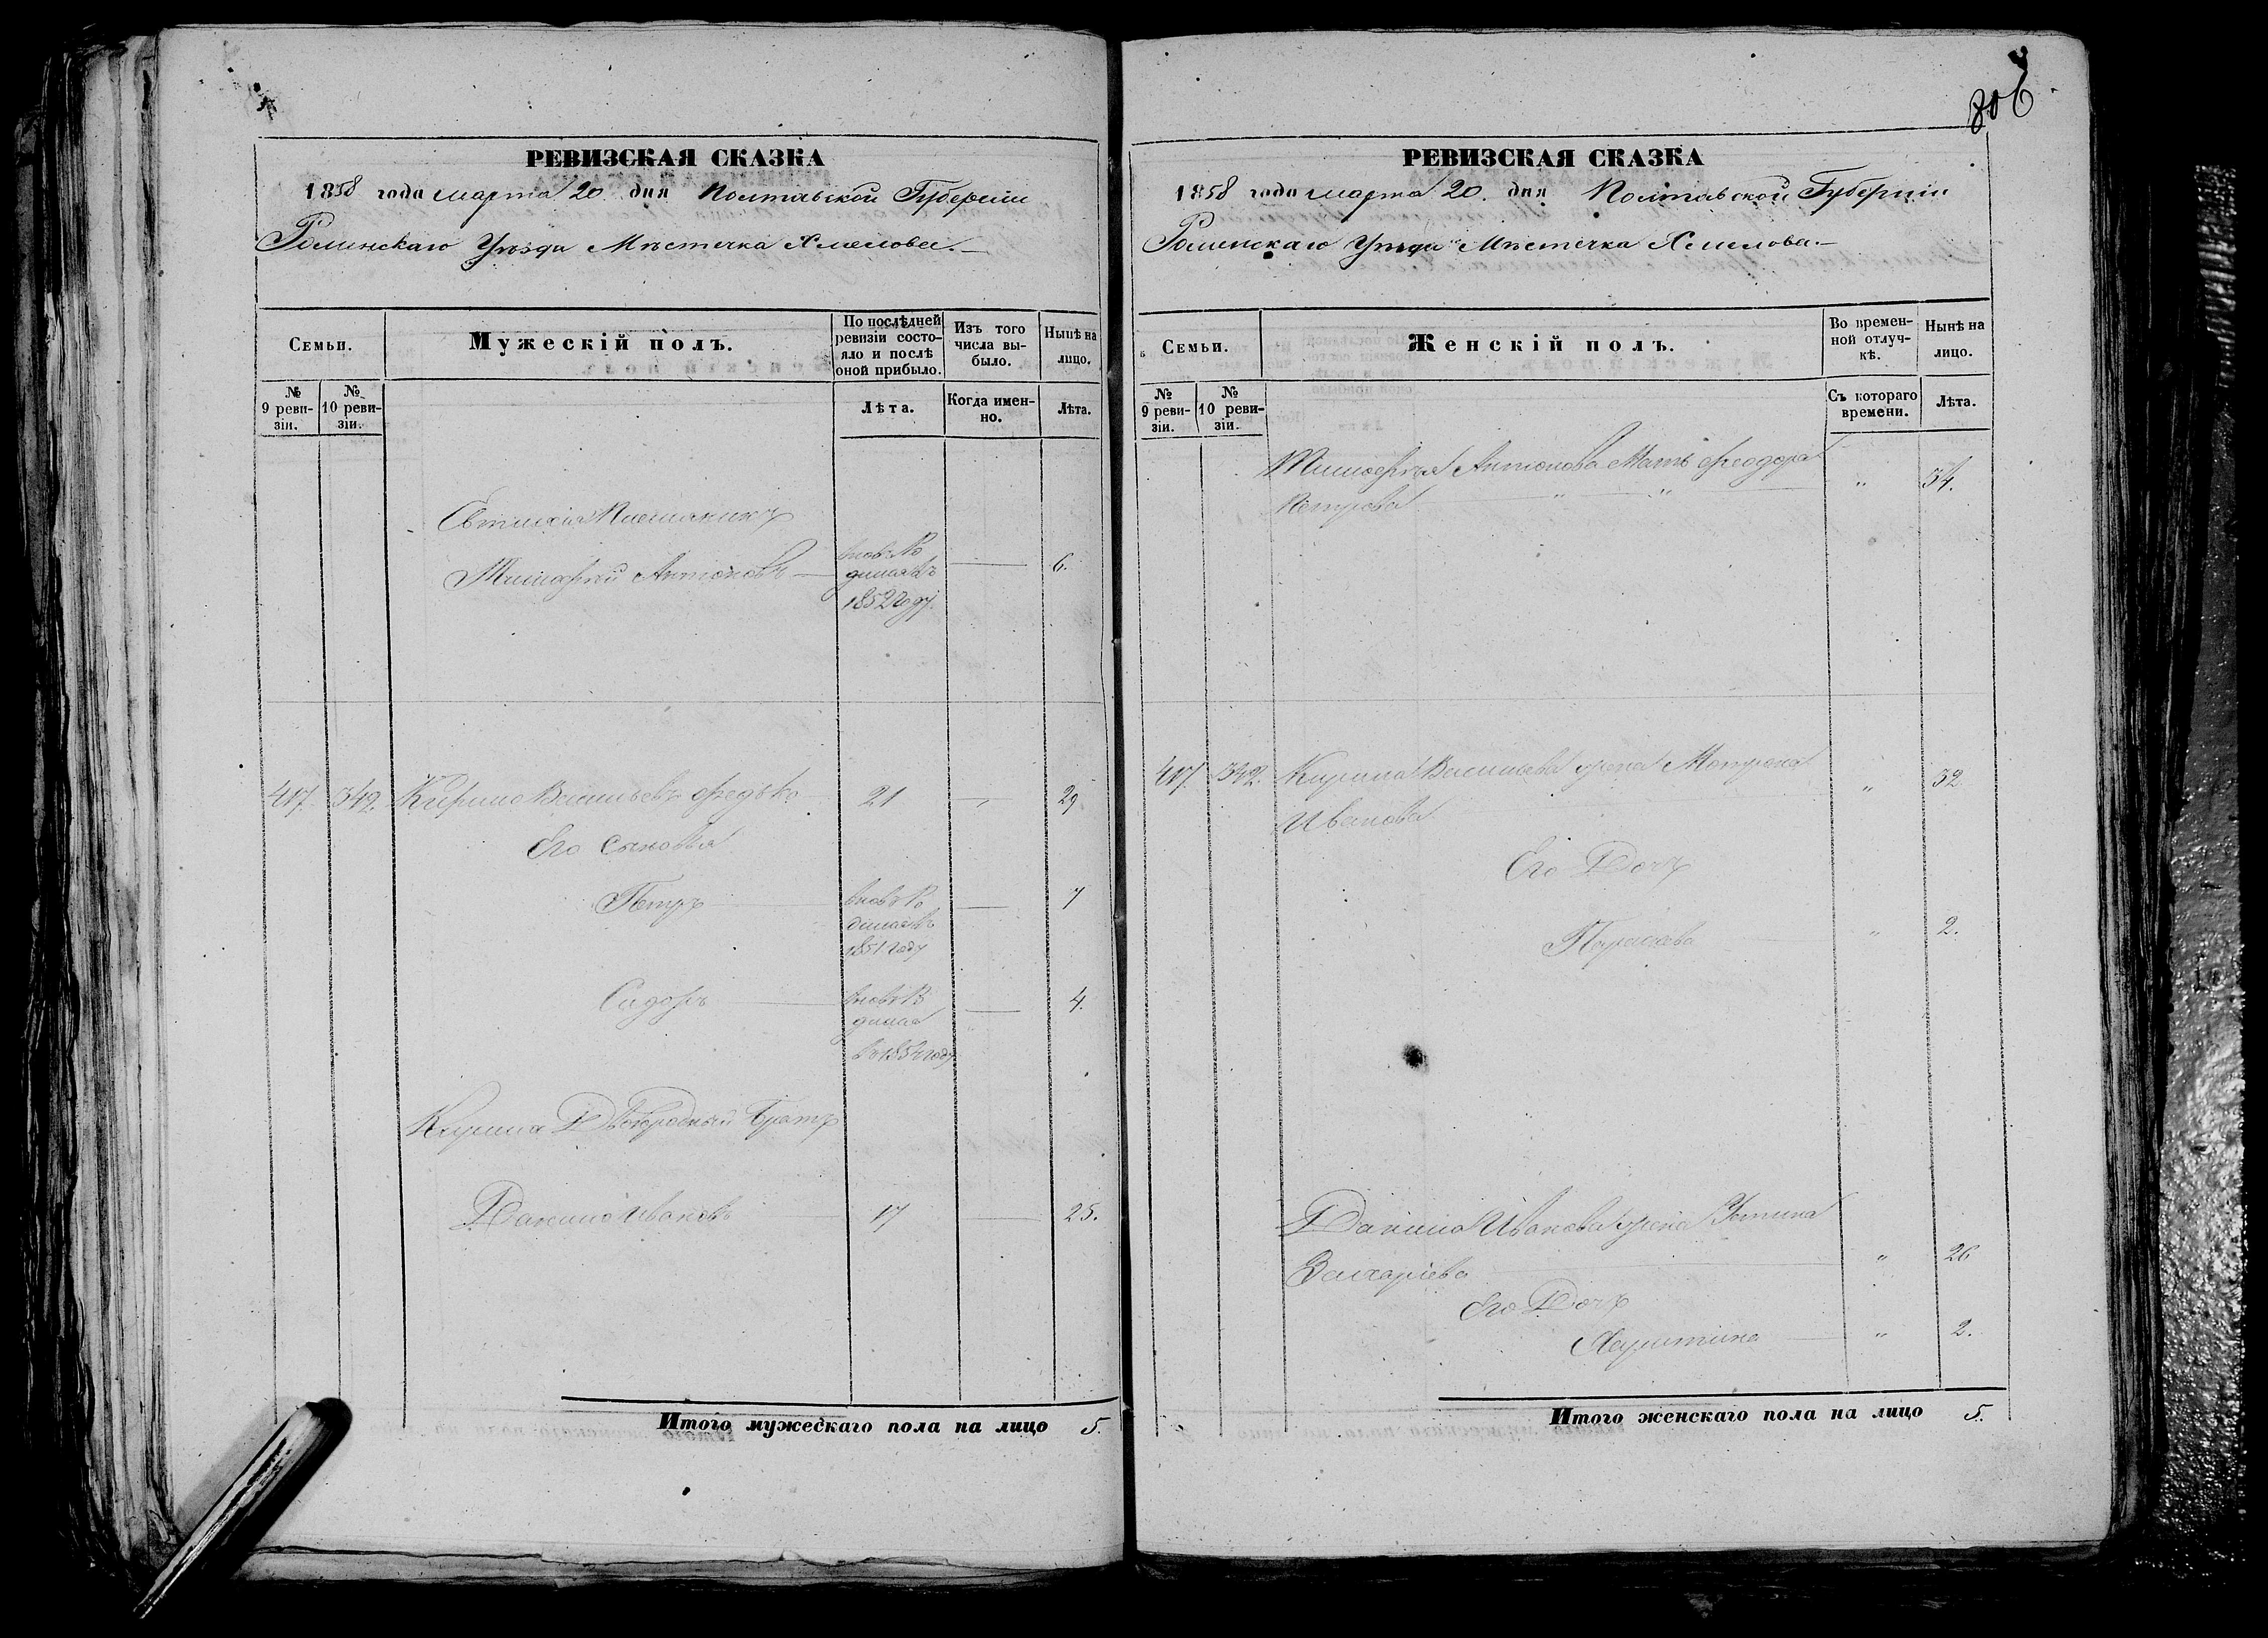 РЕВИЗСКАЯ СКАЗКА
1858 года марта 20. дня Полтавской Губерніи
Роменскаго Уѣзда Мѣстечка Хмелова.—
Семьи.
Мужескій полъ.
По послѣдней ревизіи состояло и послѣ оной прибыло.
Изъ того числа выбыло.
Нынѣ на лицо.
№ 9 ревизіи.
№ 10 ревизіи.
Лѣта.
Когда именно.
Лѣта.
Евтихія Племяникъ
Тимофей Антоновъ — вновь Ро
дился въ — 6.
1852 году.
417. 342. Кирило Васильевъ Федько 21 — 29
Его Сыновья
Петръ вновь Ро — 7
дился въ
1851 году
Сидоръ вновь Ро — 4.
дился
въ 1854 году
Кирила Двоюродный Братъ
Данило Ивановъ 17 — 25.
Итого мужескаго пола на лицо 5.
806
РЕВИЗСКАЯ СКАЗКА
1858 года марта 20. дня Полтавской Губерніи
Роменскаго Уѣзда Мѣстечка Хмелова.—
Семьи.
Женскій полъ.
Во временной отлучкѣ.
Нынѣ на лицо.
№ 9 ревизіи.
№ 10 ревизіи.
Съ котораго времени.
Лѣта.
Тимофея Антонова Мать Феодора
Петрова " " " 54.
417. 342. Кирила Васильева жена Мотрона
Иванова " 32
Его Дочь
Параскева " 2.
Данила Иванова жена Устина
Захаріева " 26
Его Дочь
Харитина " 2.
Итого женскаго пола на лицо 5.